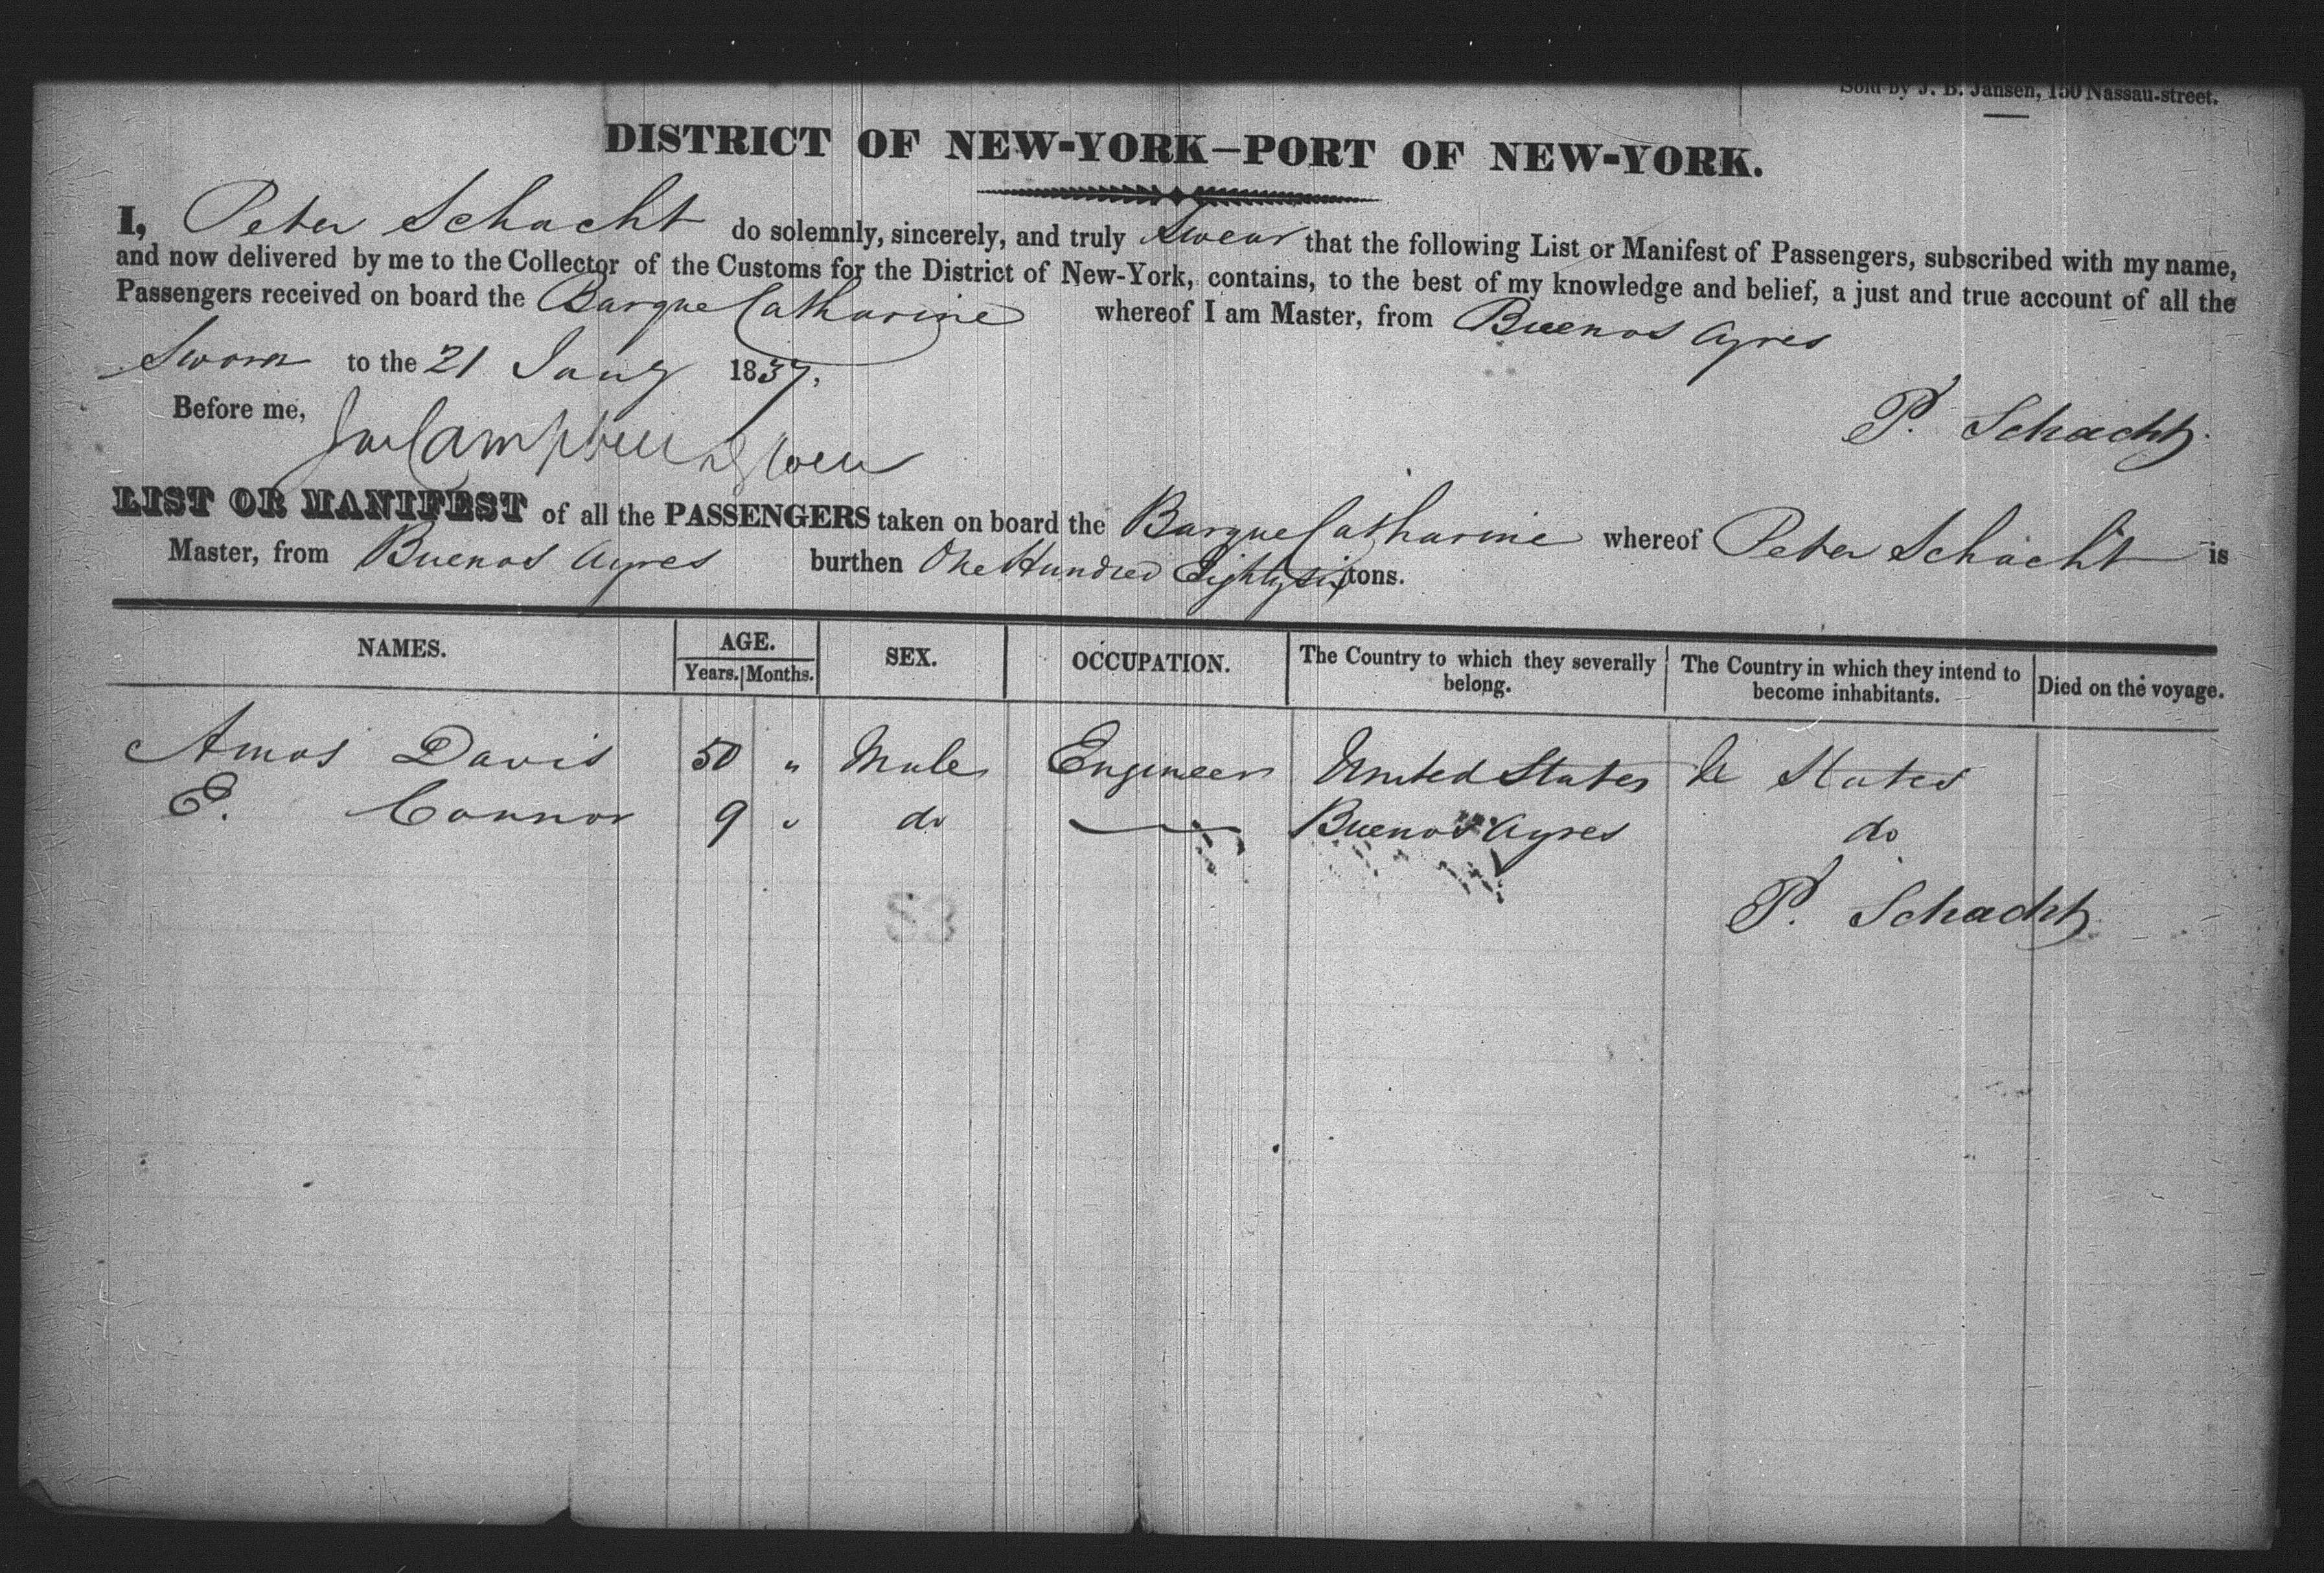 Sold by J. B. Jansen, 150 Nassau-street.
DISTRICT OF NEW-YORK—PORT OF NEW-YORK.
I, Peter Schacht do solemnly, sincerely, and truly Swear that the following List or Manifest of Passengers, subscribed with my name,
and now delivered by me to the Collector of the Customs for the District of New-York, contains, to the best of my knowledge and belief, a just and true account of all the
Passengers received on board the Barque Catharine whereof I am Master, from Buenos Ayres
Sworn to the 21 Jany 1837.
Before me, Campbell
P. Schacht
LIST OR MANIFEST of all the PASSENGERS taken on board the Barque Catharine whereof Peter Schacht is
Master, from Buenos Ayres burthen One Hundred Eighty six tons.
NAMES. AGE. Years. Months. SEX. OCCUPATION. The Country to which they severally belong. The Country in which they intend to become inhabitants. Died on the voyage.
Amos Davis 50 " Male Engineer United States U States
E. Connor 9 " do — Buenos Ayres do
P. Schacht